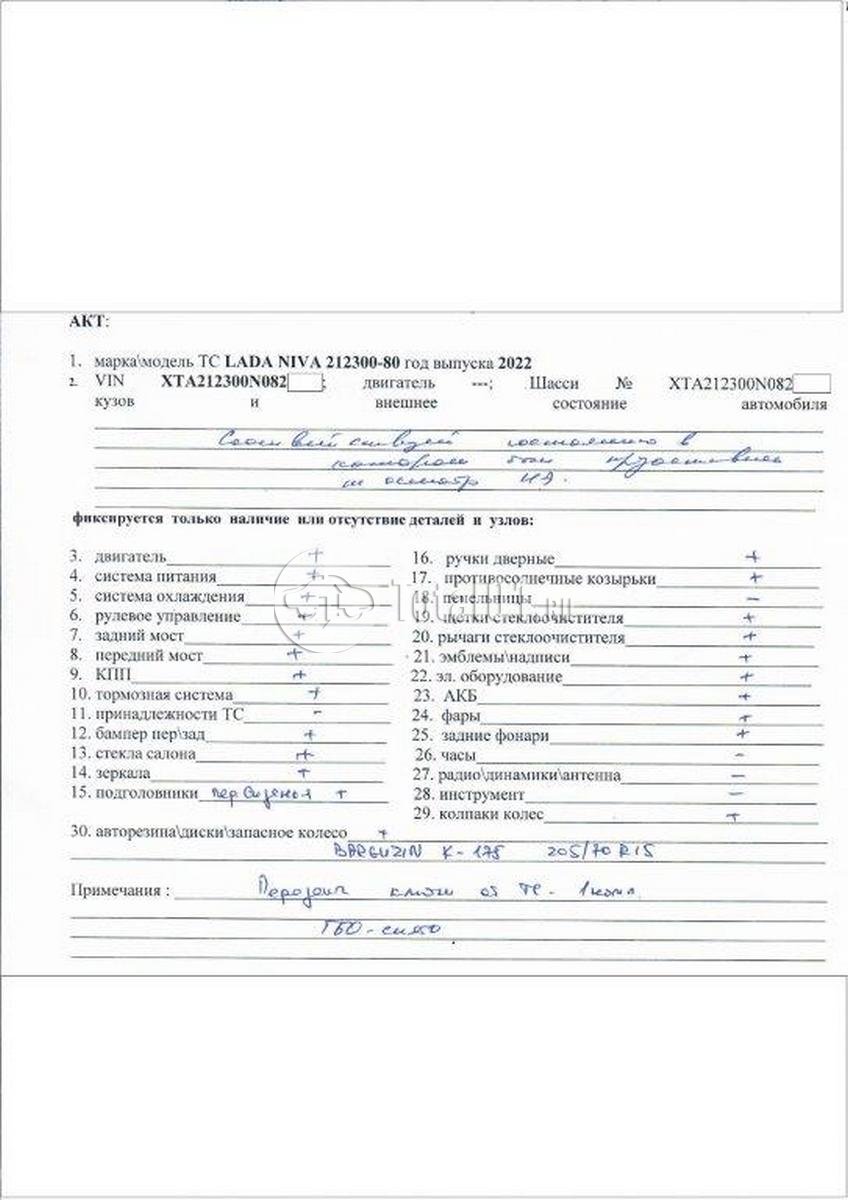 АКТ:
1. марка\модель ТС LADA NIVA 212300-80 год выпуска 2022
2. VIN XTA212300N082 ; двигатель ---; Шасси № XTA212300N082
кузов и внешнее состояние автомобиля
Соответствует состоянию в
котором был предоставлен
на осмотр НЭ.
фиксируется только наличие или отсутствие деталей и узлов:
3. двигатель +
4. система питания +
5. система охлаждения +
6. рулевое управление +
7. задний мост +
8. передний мост +
9. КПП +
10. тормозная система +
11. принадлежности ТС -
12. бампер пер\зад +
13. стекла салона +
14. зеркала +
15. подголовники пер сиденья +
16. ручки дверные +
17. противосолнечные козырьки +
18. пепельницы -
19. щетки стеклоочистителя +
20. рычаги стеклоочистителя +
21. эмблемы\надписи +
22. эл. оборудование +
23. АКБ +
24. фары +
25. задние фонари +
26. часы -
27. радио\динамики\антенна -
28. инструмент -
29. колпаки колес +
30. авторезина\диски\запасное колесо +
BARGUZIN K-175 205/70 R15
Примечания : Передан ключи от ТС - 1 компл.
ГБО - снято
TotalOt.RU